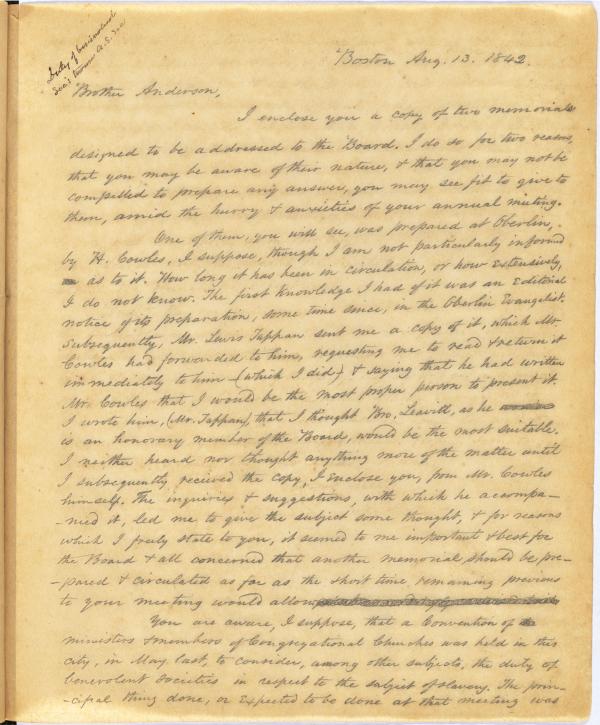 Duty of benevolent
Soc's toward A.S. Soc
Boston Aug. 13. 1842.
Brother Anderson,
I enclose you a copy of two memorials
designed to be addressed to the Board. I do so for two reasons,
that you may be aware of their nature, & that you may not be
compelled to prepare any answer, you may see fit to give to
them, amid the hurry & anxieties of your annual meeting.
One of them, you will see, was prepared at Oberlin,
by H. Cowles, I suppose, though I am not particularly informed
as to it. How long it has been in circulation, or how extensively,
I do not know. The first knowledge I had of it was an Editorial
notice of its preparation, some time since, in the Oberlin Evangelist.
Subsequently, Mr. Lewis Tappan sent me a copy of it, which Mr.
Cowles had forwarded to him, requesting me to read & return it
immediately to him (which I did) & saying that he had written
Mr. Cowles that I would be the most proper person to present it.
I wrote him, (Mr. Tappan), that I thought Bro. Leavitt, as he
is an honorary member of the Board, would be the most suitable.
I neither heard nor thought anything more of the matter until
I subsequently received the copy, I enclose you, from Mr. Cowles
himself. The inquiries & suggestions, with which he accompa-
-nied it, led me to give the subject some thought, & for reasons
which I freely state to you, it seemed to me important & best for
the Board & all concerned that another memorial should be pre-
-pared & circulated as far as the short time, remaining previous
to your meeting would allow
You are aware, I suppose, that a Convention of
ministers & members of Congregational Churches was held in this
city, in May last, to consider, among other subjects, the duty of
benevolent societies in respect to the subject of slavery. The prin-
-cipal thing done, or expected to be done at that meeting was